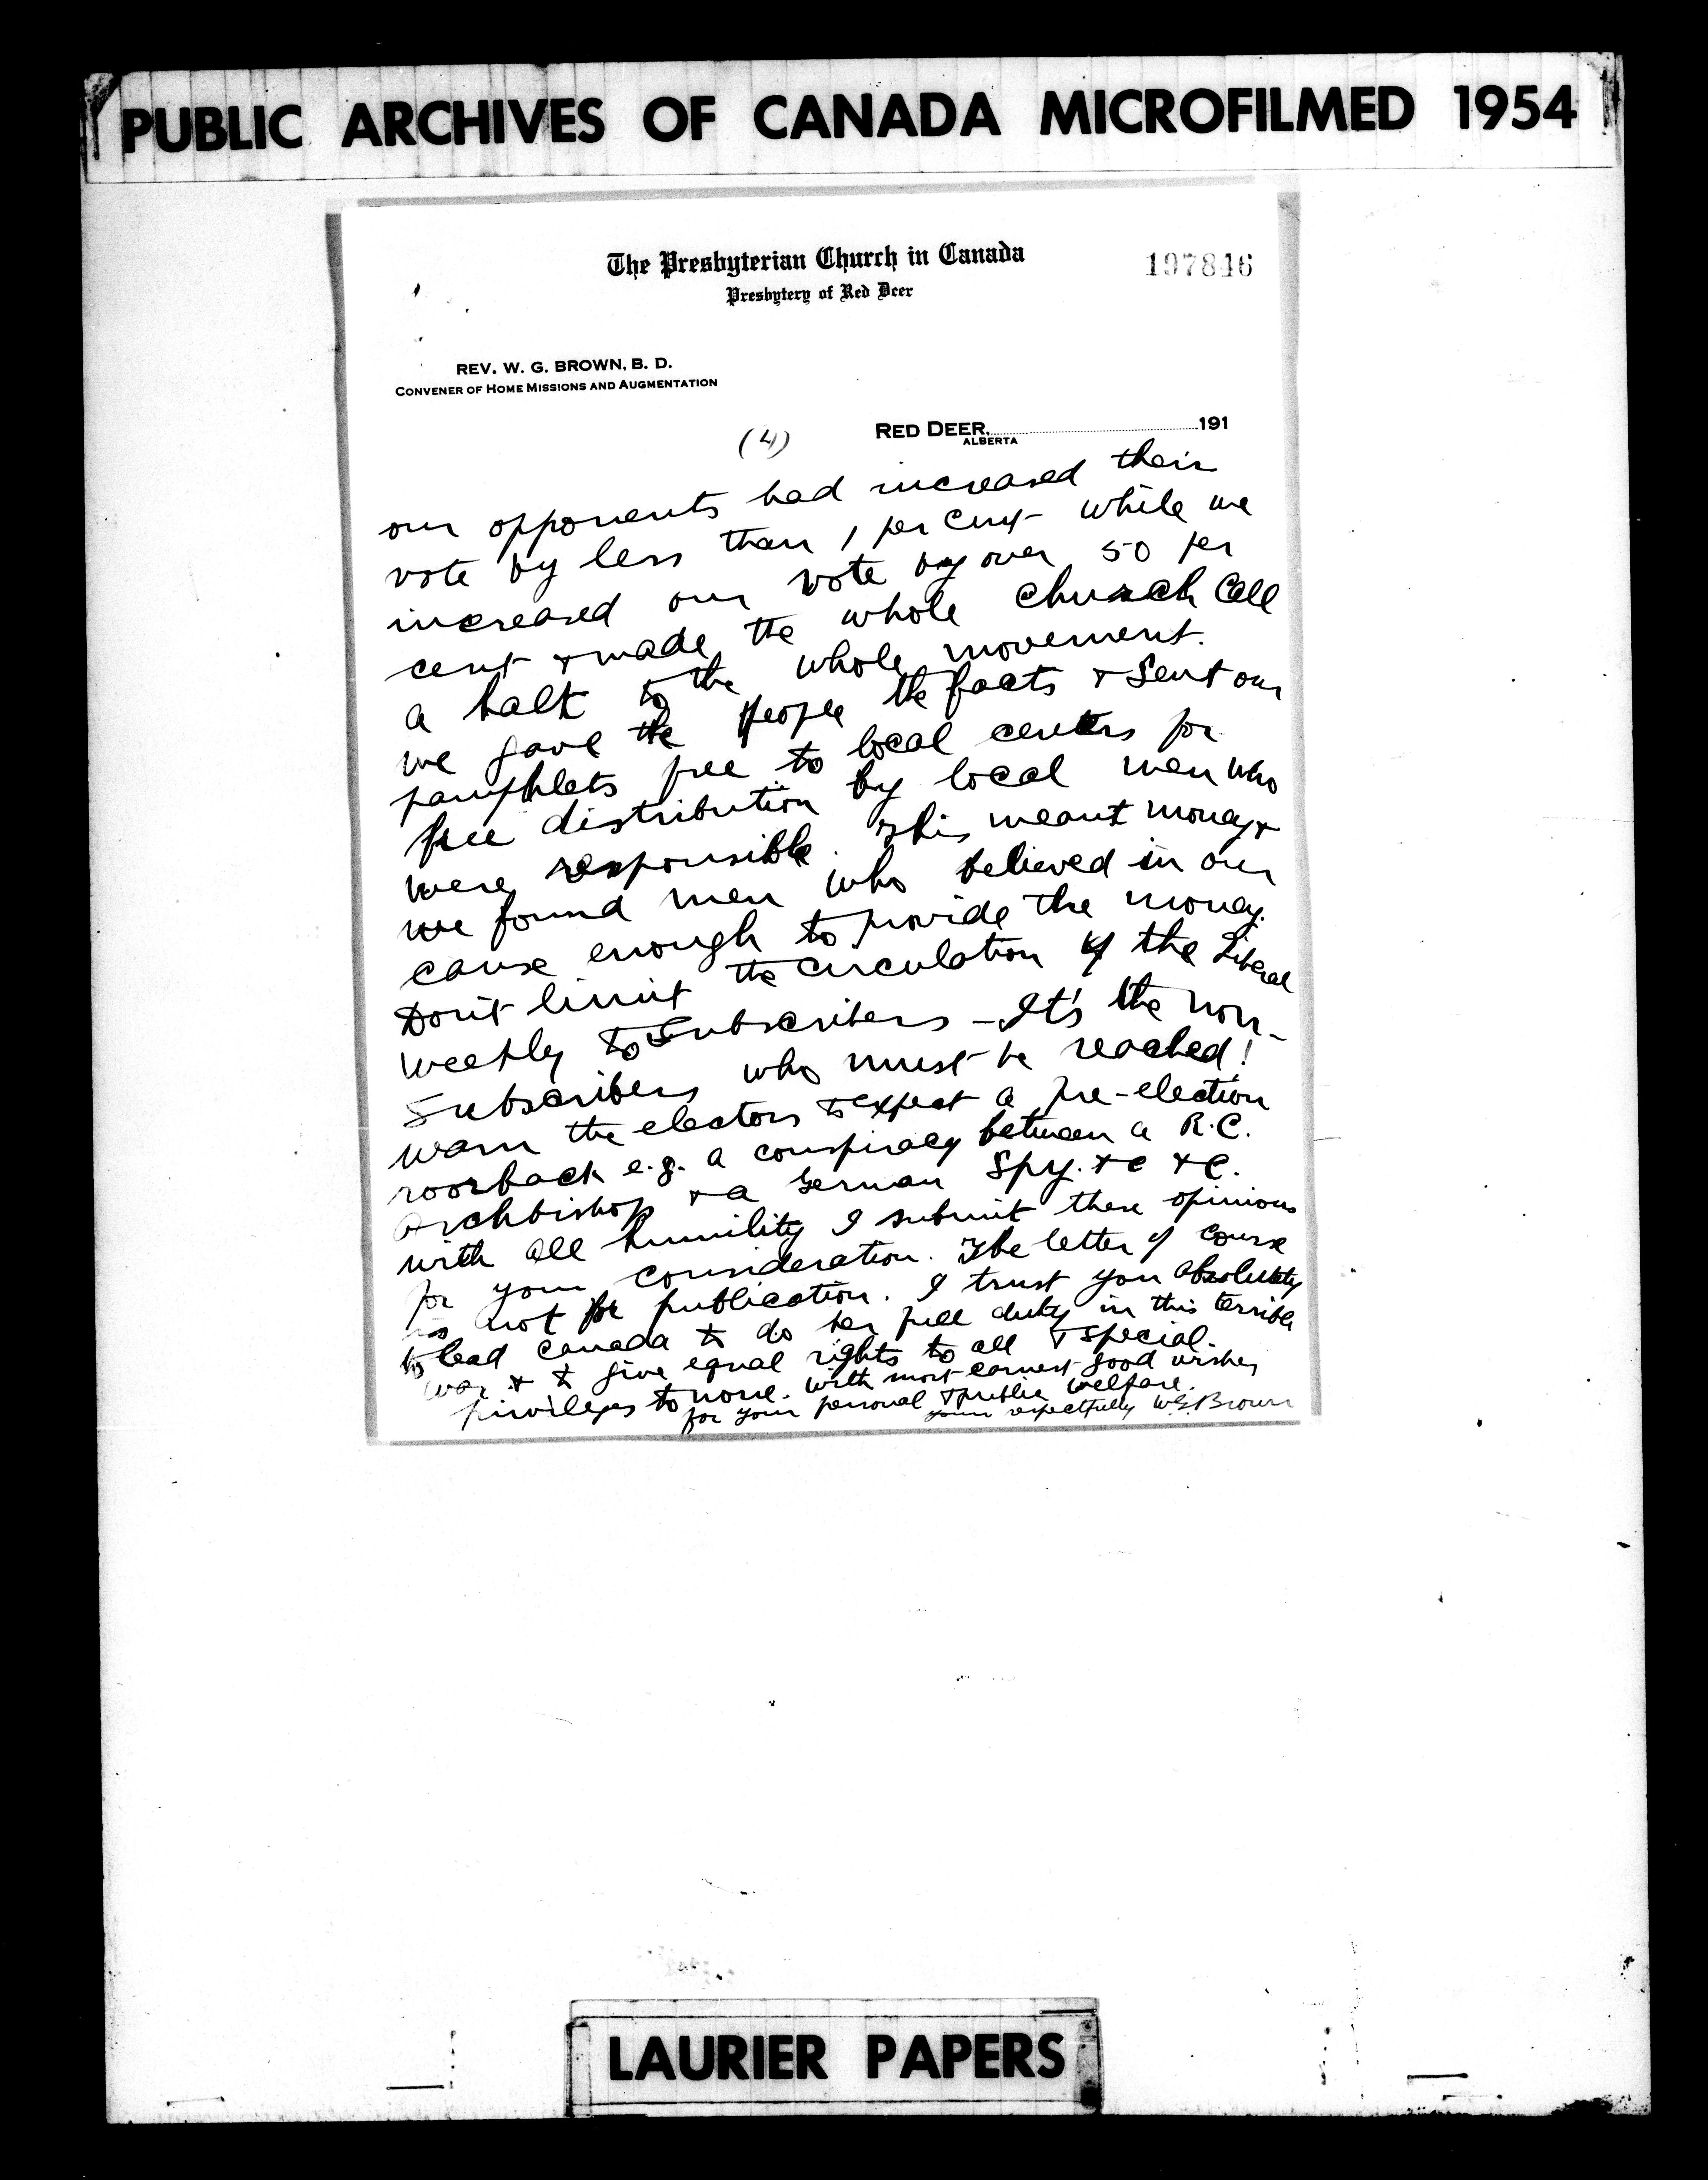 PUBLIC ARCHIVES OF CANADA MICROFILMED 1954
The Presbyterian Church in Canada
197846
Presbytery of Red Deer
REV. W. G. BROWN, B. D.
CONVENER OF HOME MISSIONS AND AUGMENTATION
(4)
RED DEER, 191
ALBERTA
our opponents had increased their
vote by less than 1 per cent while we
increased our vote by over 50 per
cent & made the whole church call
a halt to the whole movement.
we gave the people the facts & sent our
pamphlets free to local centers for
free distribution by local men who
were responsible. This meant money &
we found men who believed in our
cause enough to provide the money.
Don't limit the circulation of the Liberal
weekly to subscribers - It's the non-
subscribers who must be reached!
warn the electors to expect a pre-election
roorback e.g. a conspiracy between a R.C.
Archbishop & a German Spy. &c &c.
with all humility I submit these opinions
for your consideration. The letter of course
is not for publication. I trust you absolutely
to lead Canada to do her full duty in this terrible
war & to give equal rights to all & special
privileges to none. With most earnest good wishes
for your personal & public welfare.
yours respectfully W.G. Brown
LAURIER PAPERS